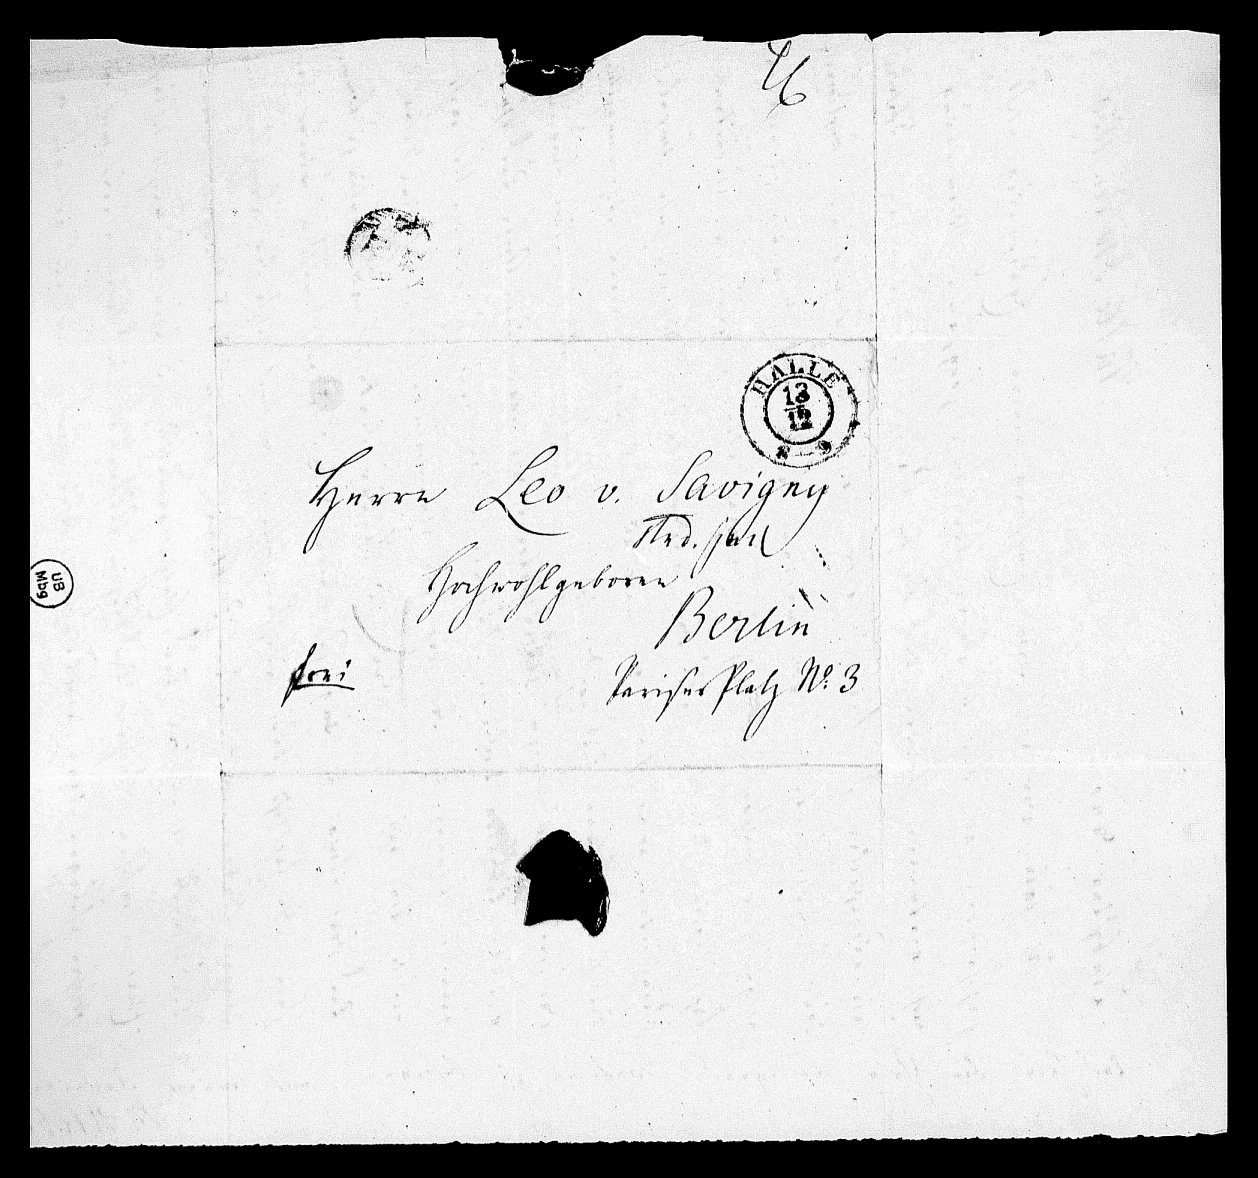 HALLE
13
12
8–9
Herrn Leo v. Savigny
Stud. jur.
Hochwohlgeboren
Berlin
frei
Pariser Platz No. 3
UB
Mbg